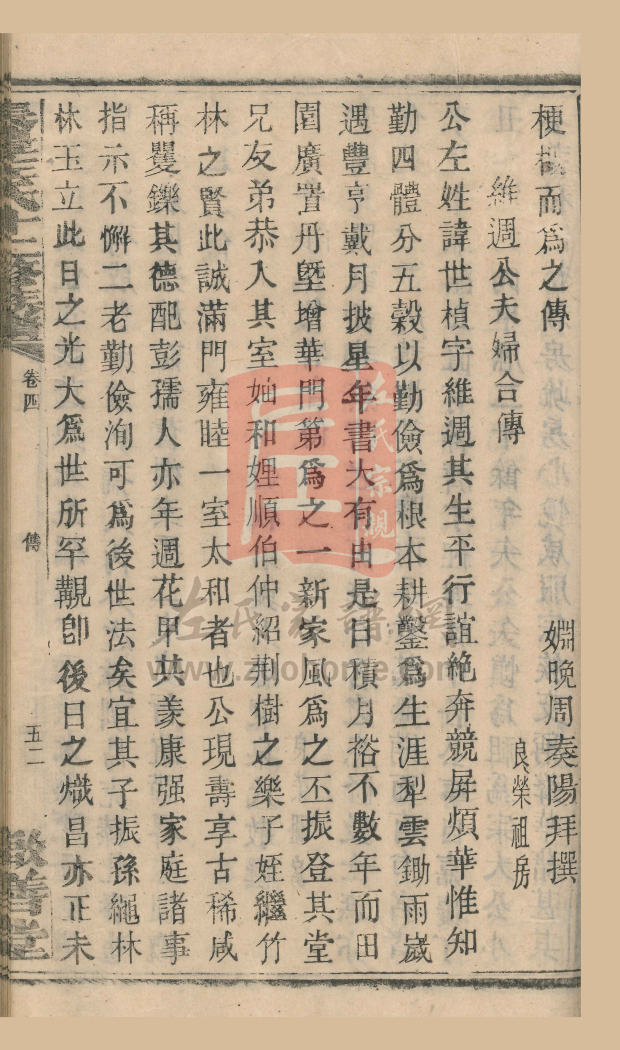 梗概而爲之傳
姻晚周奏陽拜撰
維週公夫婦合傳
良榮祖房
公左姓諱世楨字維週其生平行誼絶奔競屏煩華惟知
勤四體分五穀以勤儉爲根本耕鑿爲生涯犁雲鋤雨歲
遇豐亨戴月披星年書大有由是日積月㨿不數年而田
園廣置丹塈增華門第爲之一新家風爲之丕振登其堂
兄友弟恭入其室妯和娌順伯仲紹荆樹之樂子姪繼竹
林之賢此誠滿門雍睦一室太和者也公現壽享古稀咸
稱矍鑠其德配彭孺人亦年週花甲共羨康强家庭諸事
指示不懈二老勤儉洵可爲後世法矣宜其子振孫繩林
林玉立此日之光大爲世所罕覯卽後日之熾昌亦正未
卷四
傳
五二
敦善堂
左氏宗親
左氏家譜網